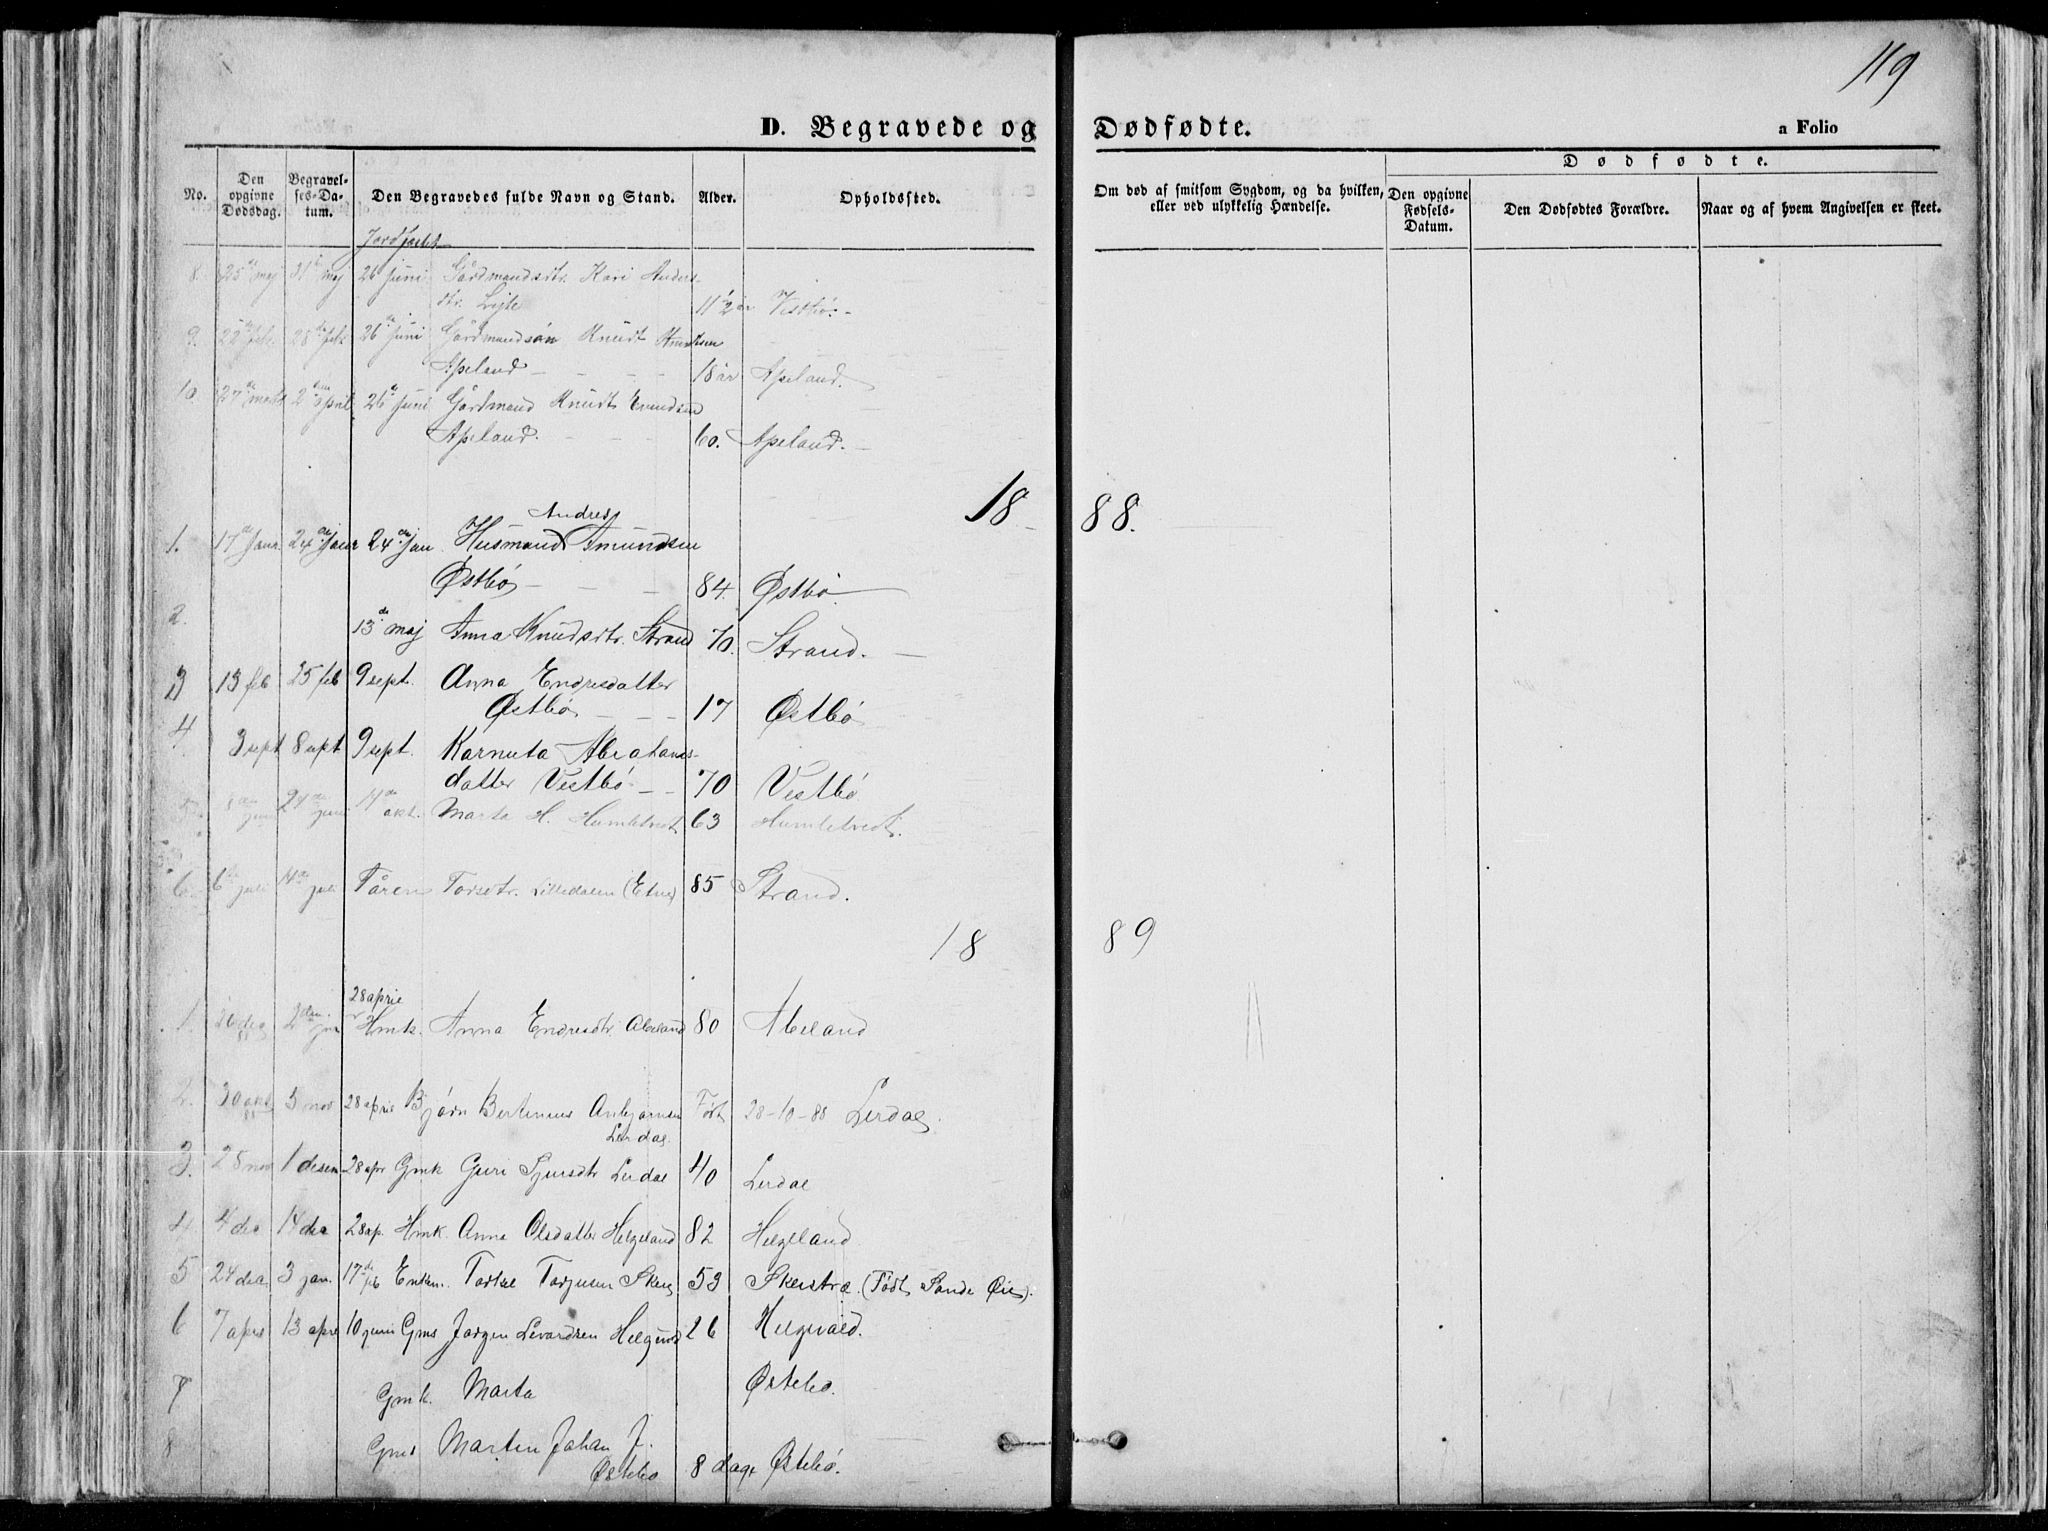 119
D. Begravede og Dødfødte.
a Folio
No.
Den opgivne Dødsdag.
Begravelses-Datum.
Den Begravedes fulde Navn og Stand.
Alder.
Opholdssted.
Om død af smitsom Sygdom, og da hvilken, eller ved ulykkelig Hændelse.
Dødfødte.
Den opgivne Fødsels-Datum.
Den Dødfødtes Forældre.
Naar og af hvem Angivelsen er skeet.
Jordfæstet
8. 25de maj 31te maj 26 juni Gårdmandsdtr. Kari Anders-
dtr. 11½ år Vestbø.
9. 22de feb. 28de feb. 26de juni Gårdmandsøn Knudt Knudtsen
Apeland 18 år Apeland.
10. 27de marts 2den april 26de juni Gårdmand Knudt
Apeland. 60. Apeland.
1888.
Andreas
1. 17de Janr 24de Janr 24de Jan Husmand Amundsen
Østbø 84. Østbø
2. 13de maj Anna Knudsdtr. Strand 70. Strand.
3 13 feb 25 feb 9 sept. Anna Endresdatter
Østbø 17 Østbø
4 3 sept 8 sept 9 sept. Karnuta Abrahams-
datter Vestbø 70 Vestbø
5. 24de juni 14de okt. Marta H. Humletvedt 63 Humletvedt.
6. 6te juli 14de juli Tåren Torsdtr. Lilledalen (Etne) 85 Strand.
1889
28 april
1 26 dec 88 2den jan Hmk. Anna Endresdtr. Abeland 80 Abeland
2. 30 okt 88 3 nov 28 april Bjørn Bertinius Anbjørnsen Født 28-10-88 Lerdal.
Lerdal.
3. 25 nov 1 desem 28 apr Gmk Guri Sjursdtr Lerdal 40 Lerdal
4 4 dec 14 dec 28 ap. Hmk. Anna Olsdatter Helgeland 82 Helgeland
5 24 dec 3 jan. 17de feb Enkem. Torkel Torjusen 53 (Født Sande Øie).
6 7 april 13 april 10 juni Gms Jørgen 26 Helgevold.
7 Gmk. Marta Østebø.
8 Gms Martin Johan J.
Østebø 8 dage Østebø.